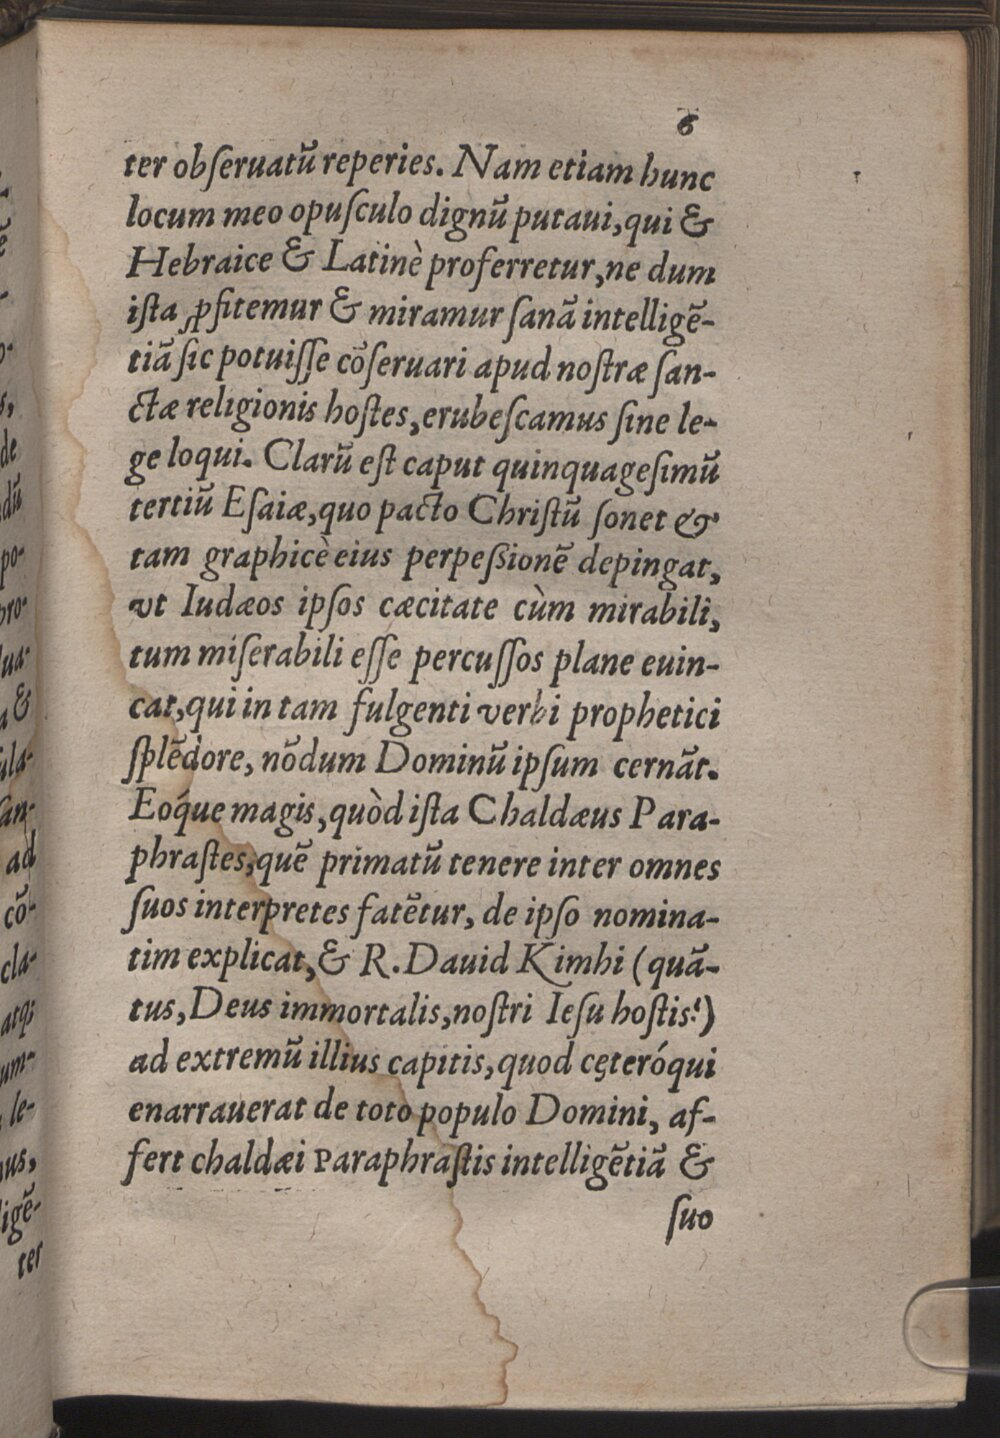 6
ter obſeruatũ reperies. Nam etiam hunc
locum meo opuſculo dignũ putaui, qui &
Hebraice & Latinè proferretur, ne dum
iſta ꝓfitemur & miramur ſanã intelligẽ-
tiã ſic potuiſſe cõſeruari apud noſtræ ſan-
ctæ religionis hoſtes, erubeſcamus ſine le-
ge loqui. Clarũ eſt caput quinquageſimũ
tertiũ Eſaiæ, quo pacto Chriſtũ ſonet &
tam graphicè eius perpeßionẽ depingat,
vt Iudæos ipſos cæcitate cùm mirabili,
tum miſerabili eſſe percuſſos plane euin-
cat, qui in tam fulgenti verbi prophetici
ſplẽdore, nõdum Dominũ ipſum cernãt.
Eoq́ue magis, quòd iſta Chaldæus Para-
phraſtes, quẽ primatũ tenere inter omnes
ſuos interpretes fatẽtur, de ipſo nomina-
tim explicat, & R. Dauid Kimhi (quã-
tus, Deus immortalis, noſtri Ieſu hoſtis!)
ad extremũ illius capitis, quod cęteróqui
enarrauerat de toto populo Domini, af-
fert chaldæi Paraphraſtis intelligẽtiã &
ſuo
de
dũ
po-
pro-
lua-
a &
ula-
ſan-
ad
cõ-
cla-
atq;
um-
le-
ter